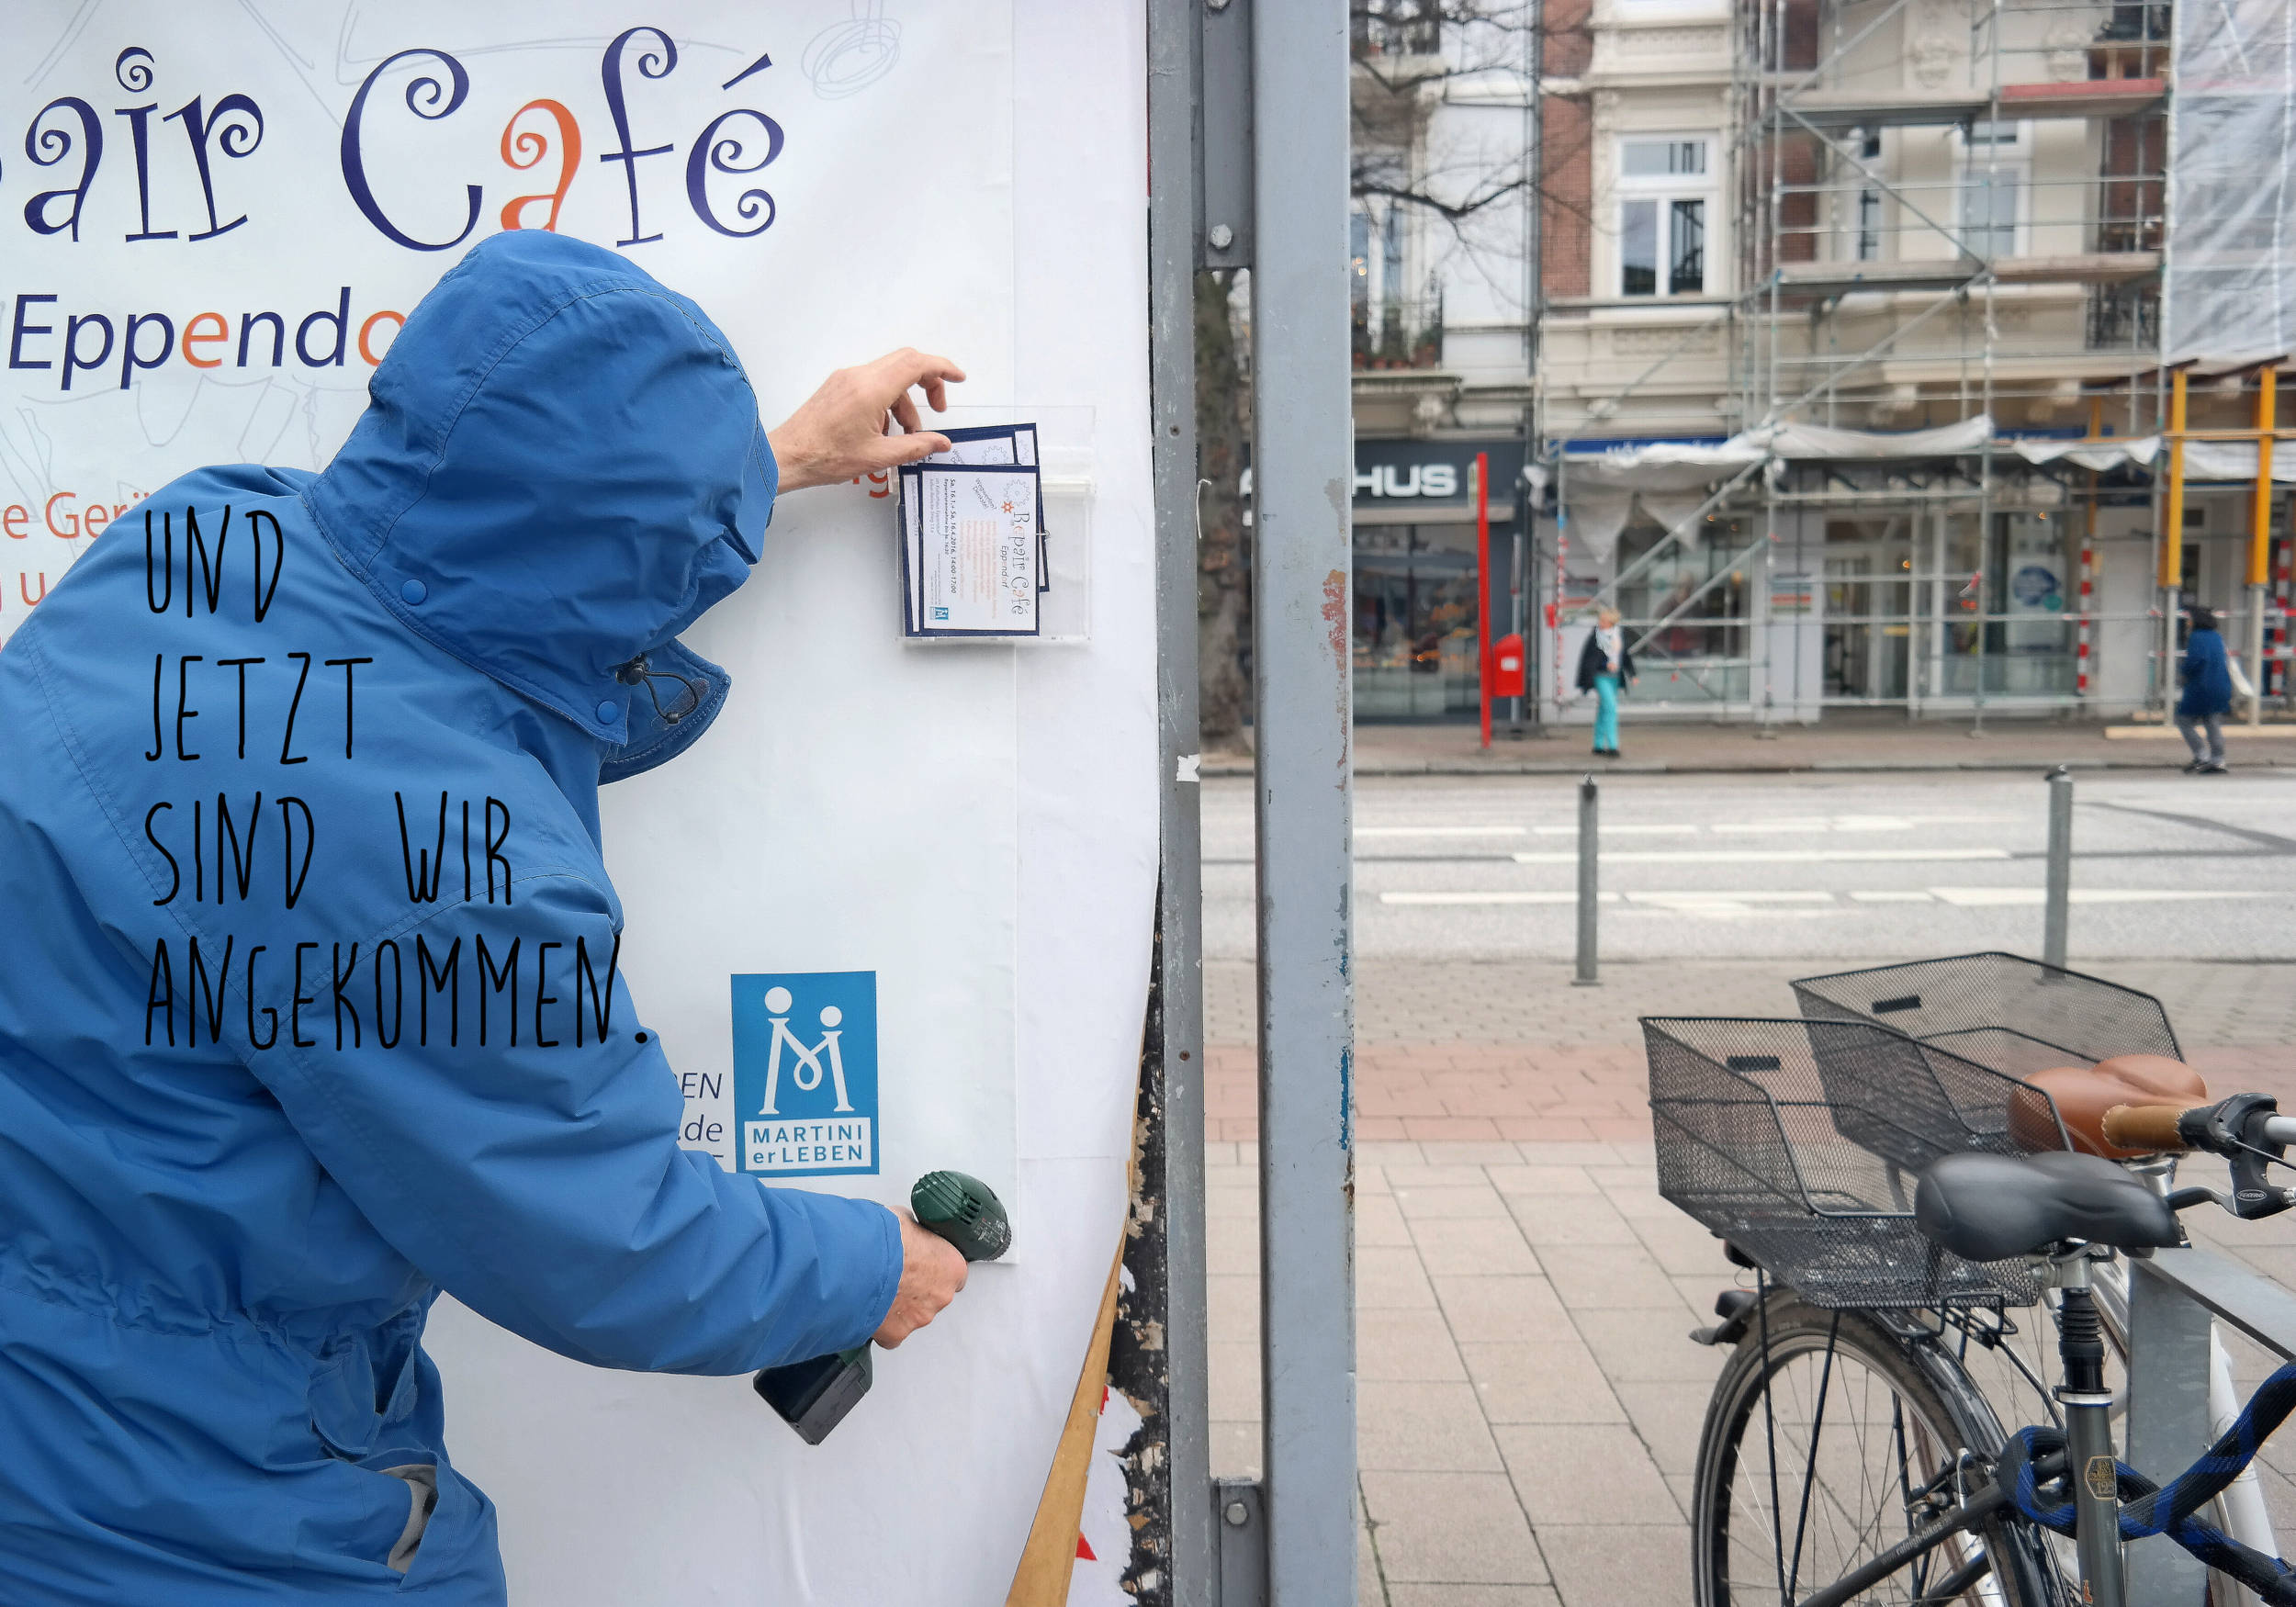 air Café
Eppendo
e Gerä
g
u
UND
JETZT
SIND WIR
ANGEKOMMEN.
Repair Café
Eppendorf
HUS
EN
.de
MARTINI
erLEBEN